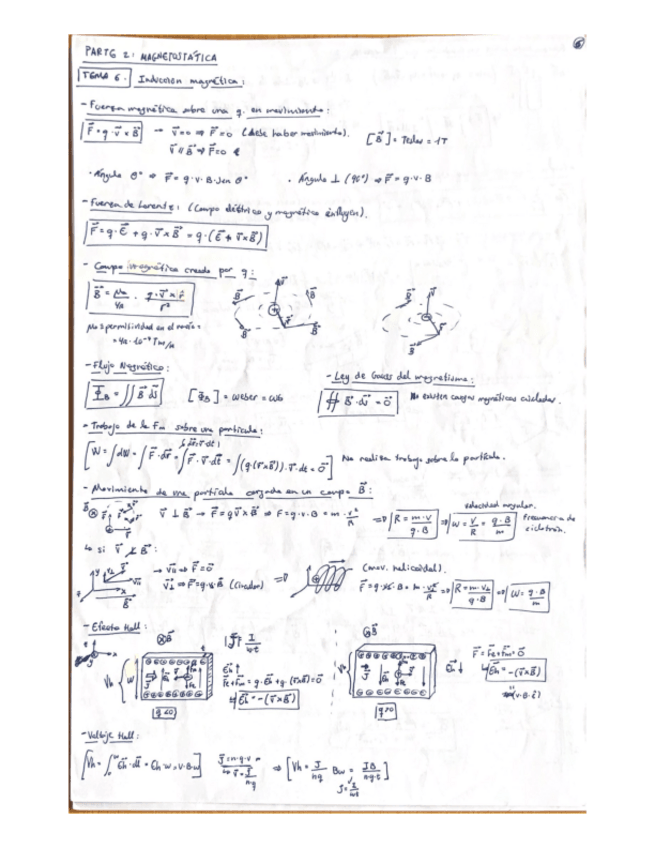 PARTE 2: MAGNETOSTÁTICA
TEMA 6. Inducción magnética:
- Fuerza magnética sobre una q. en movimiento:
F⃗ = q · v⃗ × B⃗ → v⃗=0 ⇒ F⃗=0 (debe haber movimiento). [B⃗] = Tesla = 1T
v⃗ ∥ B⃗ ⇒ F⃗=0
· Ángulo θ° ⇒ F⃗ = q·v·B·sen θ° · Ángulo ⊥ (90°) ⇒ F⃗ = q·v·B
- Fuerza de Lorentz: (Campo eléctrico y magnético
F⃗ = q·E⃗ + q·v⃗×B⃗ = q·(E⃗ + v⃗×B⃗)
- Campo magnético creado por q:
B⃗ = μ₀/4π · q·v⃗×r̂/r²
= 4π·10⁻⁷ Tm/A
- Flujo Magnético:
Φ_B = ∬ B⃗ ds⃗ [Φ_B] = weber = Wb
- Ley de Gauss del magnetismo:
∯ B⃗·ds⃗ = 0⃗ No existen cargas magnéticas aisladas.
- Trabajo de la Fm sobre una partícula:
[W = ∫dW = ∫F⃗·dr⃗ = ∫F⃗·v⃗·dt = ∫(q·(v⃗×B⃗))·v⃗·dt = 0⃗] No realiza trabajo sobre la partícula.
- Movimiento de una partícula cargada en un campo B⃗:
v⃗ ⊥ B⃗ → F⃗ = q v⃗×B⃗ ⇒ F = q·v·B = m·v²/R ⇒ R = m·v/q·B ⇒ W = v/R = q·B/m
velocidad angular.
frecuencia de ciclotrón.
↳ si v⃗ ⊥̸ B⃗:
→ v∥ ⇒ F⃗=0⃗
v⊥ ⇒ F⃗=q·v·B (Circular) ⇒ (mov. helicoidal).
R = m·v⊥/q·B ⇒ W = q·B/m
- Efecto Hall:
⊗B⃗ J⃗ = I/w·t
F⃗e+F⃗m = q·E⃗h + q·(v⃗×B⃗) = 0
E⃗h = -(v⃗×B⃗)
q<0
⊙B⃗
E⃗h ↓ F⃗ = F⃗e+F⃗m = 0⃗
E⃗h = -(v⃗×B⃗)
q>0
- Voltaje Hall:
[Vh = ∫₀ʷ E⃗h·dl⃗ = Eh·w = v·B·w] J⃗ = n·q·v⃗ ⇒ [Vh = J/nq Bw = IB/n·q·t]
↳ v⃗ = J⃗/nq
J = I/wt